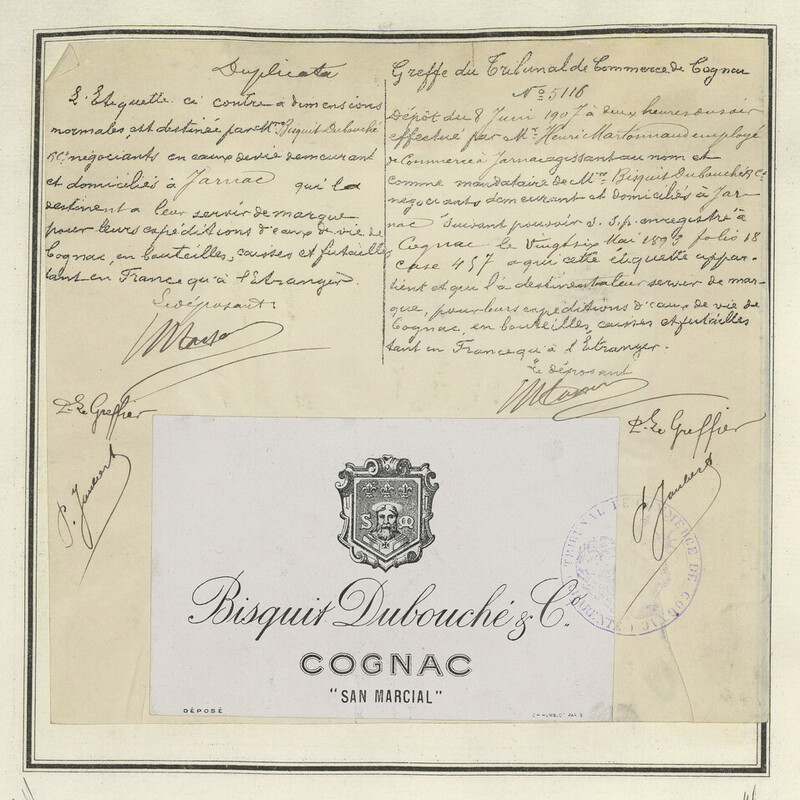 Duplicata
L'Etiquette ci contre à dimensions
normales, est destinée par Mrs Bisquit Dubouché
& Cie négociants en eaux de vie demeurant
et domiciliés à Jarnac qui la
destinent a leur servir de marque
pour leurs expéditions d'eaux de vie de
Cognac, en bouteilles, caisses et futailles
tant en France qu'à l'Etranger.
Le déposant
P. Le Greffier
Greffe du Tribunal de Commerce de Cognac
No 5116
Dépôt du 8 Juin 1907 à deux heures du soir
effectué par Mr Henri Martonnaud employé
de Commerce à Jarnac agissant au nom et
comme mandataire de Mrs Bisquit Dubouché & Ce
négociants demeurant et domiciliés à Jar-
nac suivant pouvoir s. s. p. enregistré à
Cognac le Vingt six Mai 1893 folio 18
case 457 a qui cette étiquette appar-
tient et qui l'a destinent a leur servir de mar-
que, pour leurs expéditions d'eaux de vie de
Cognac, en bouteilles, caisses et futailles
tant en France qu'à l'Etranger.
Le déposant
P. Le Greffier
S M
Bisquit Dubouché & C.
COGNAC
"SAN MARCIAL"
DÉPOSÉ
TRIBUNAL DE COMMERCE DE COGNAC
(CHARENTE)